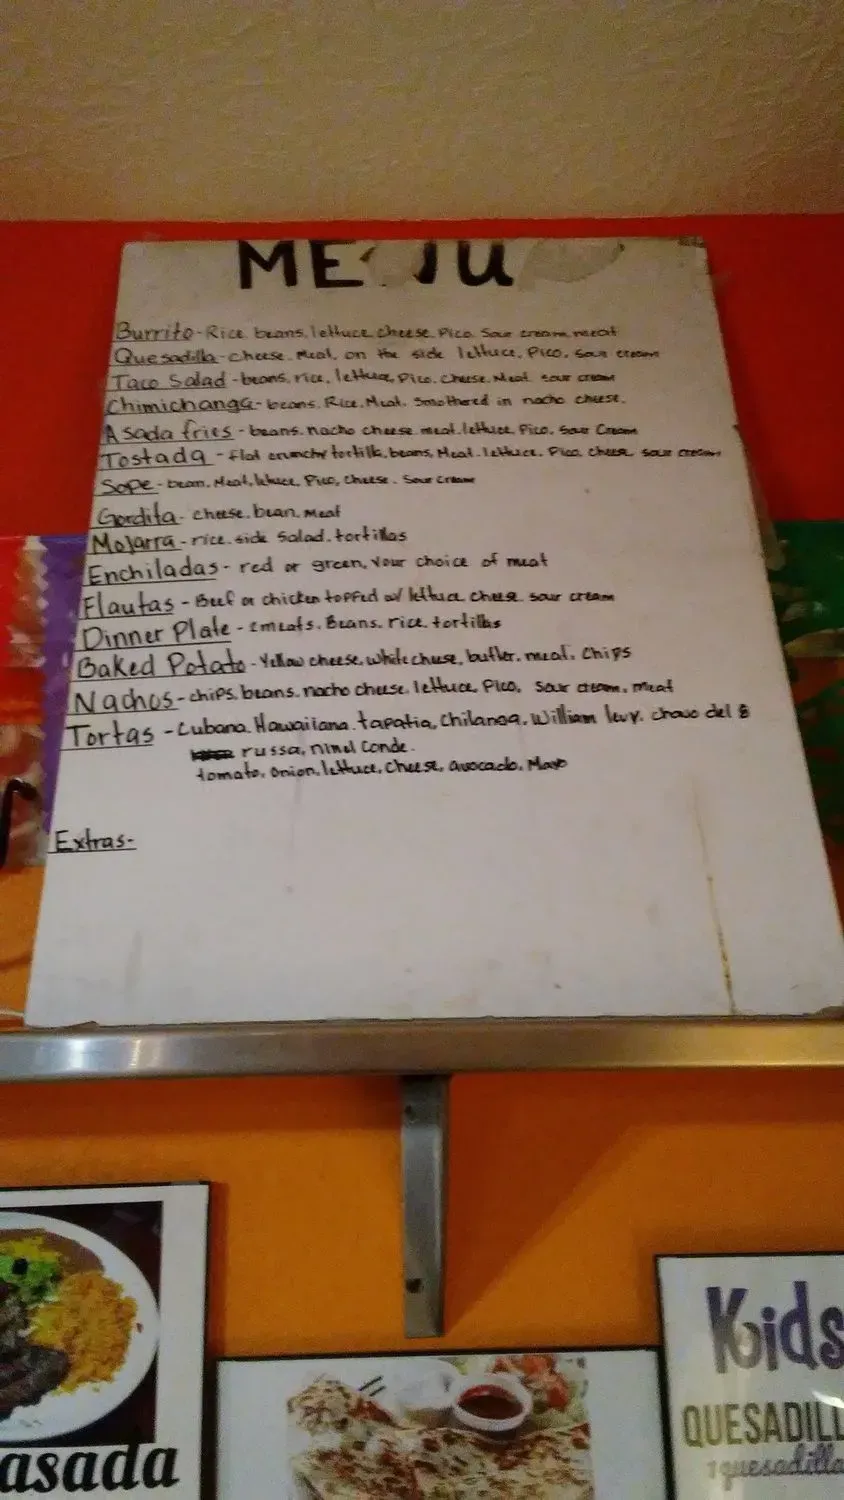 MENU
Burrito - Rice. beans, lettuce, cheese, Pico. Sour cream, meat
Quesadilla - cheese. Meat, on the side lettuce, Pico, Sour cream
Taco Salad - beans, rice, lettuce, Pico, Cheese, Meat. sour cream
Chimichanga - beans. Rice. Meat. Smothered in nacho cheese.
Asada fries - beans. nacho cheese. meat. lettuce. Pico. Sour Cream
Tostada - flat crunchy tortilla, beans, Meat. lettuce. Pico, cheese, sour cream
Sope - bean, Meat, lettuce, Pico, Cheese. Sour Cream
Gordita - cheese, bean, Meat
Mojarra - rice. side Salad. tortillas
Enchiladas - red or green, your choice of meat
Flautas - Beef or chicken topped w/ lettuce cheese sour cream
Dinner Plate - 2 meats. Beans, rice, tortillas
Baked Potato - Yellow cheese, white cheese, butter, meat. Chips
Nachos - chips, beans, nacho cheese, lettuce, Pico, Sour cream, meat
Tortas - Cubana. Hawaiiana. tapatia, Chilanga, William levy. chavo del 8
russa, ninel Conde.
tomato, onion, lettuce, cheese, avocado, Mayo
Extras-
asada
Kids
QUESADILL
1 quesadilla